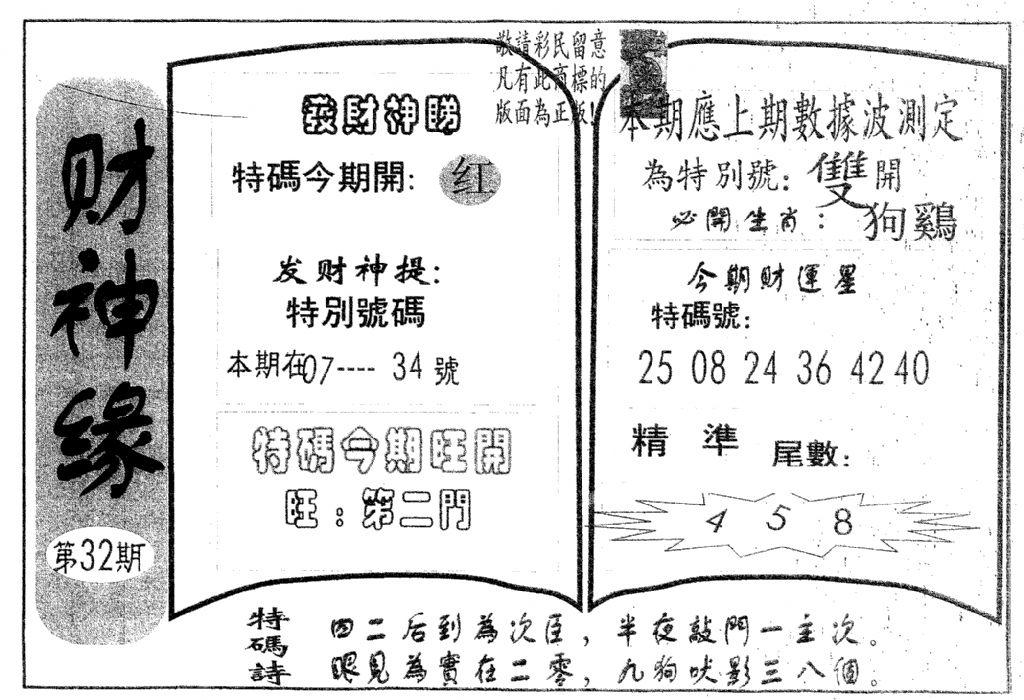 财神缘
第32期
敬請彩民留意
凡有此商標的
版面為正版!
發財神睇
特碼今期開: 红
发财神提:
特别號碼
本期在07----34號
特碼今期旺開
旺:第二門
本期應上期數據波測定
為特別號:雙開
必開生肖:狗鷄
今期财運星
特碼號:
25 08 24 36 42 40
精準尾數:
4 5 8
特碼詩
四二后到為次臣,半夜敲門一主次。
眼見為實在二零,九狗吠影三八個。